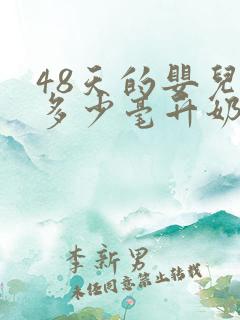 48天的嬰兒
多少毫升奶
李新男
未任同意禁止转载